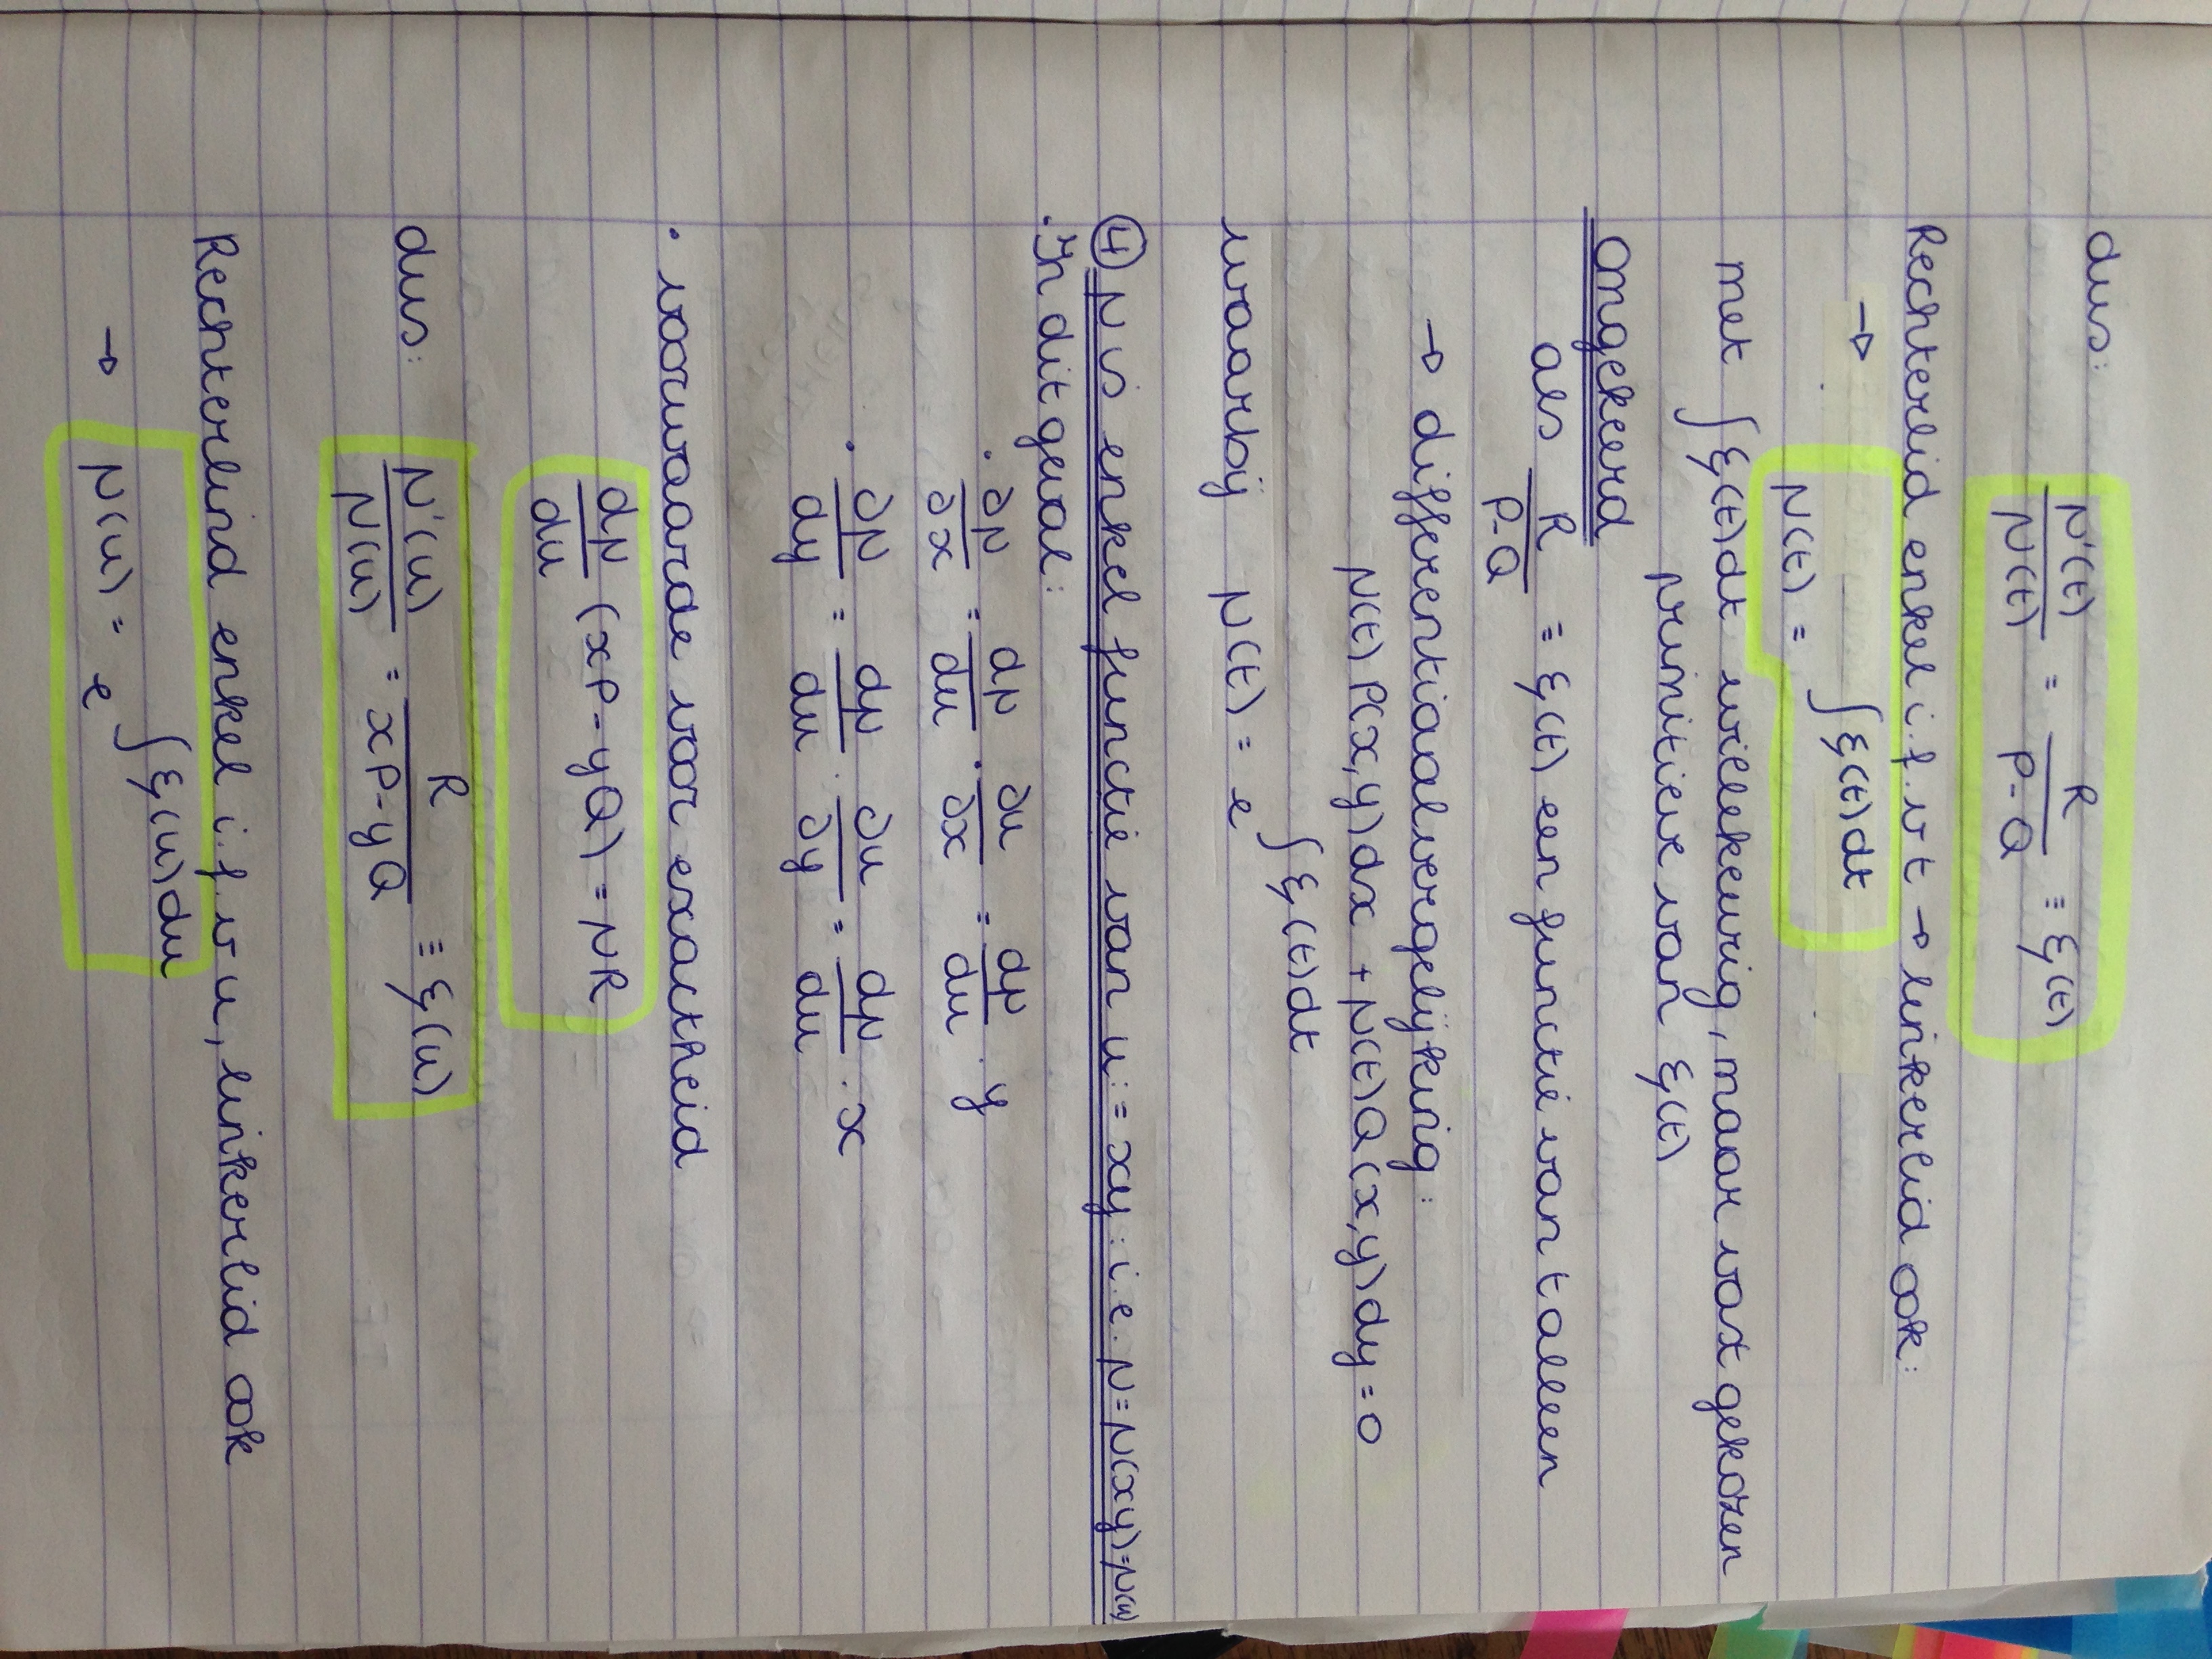 dus:
μ'(t)/μ(t) = R/(P-Q) ≡ ξ(t)
Rechterlid enkel i.f.v t → linkerlid ook:
→ μ(t) = ∫ξ(t)dt
met ∫ξ(t)dt willekeurig, maar vast gekozen
primitieve van ξ(t)
Omgekeerd
als R/(P-Q) ≡ ξ(t) een functie van t alleen
→ differentiaalvergelijking:
μ(t) P(x,y)dx + μ(t)Q(x,y)dy = 0
waarbij μ(t) = e^∫ξ(t)dt
④ μ is enkel functie van u := xy : i.e. μ = μ(xy) = μ(u)
· In dit geval:
· ∂μ/∂x = dμ/du · ∂u/∂x = dμ/du · y
· ∂μ/dy = dμ/du · ∂u/∂y = dμ/du · x
· voorwaarde voor exactheid
dμ/du (xP - yQ) = μR
dus: μ'(u)/μ(u) = R/(xP-yQ) ≡ ξ(u)
Rechterlind enkel i.f.v u, linkerlid ook
→ μ(u) = e^∫ξ(u)du